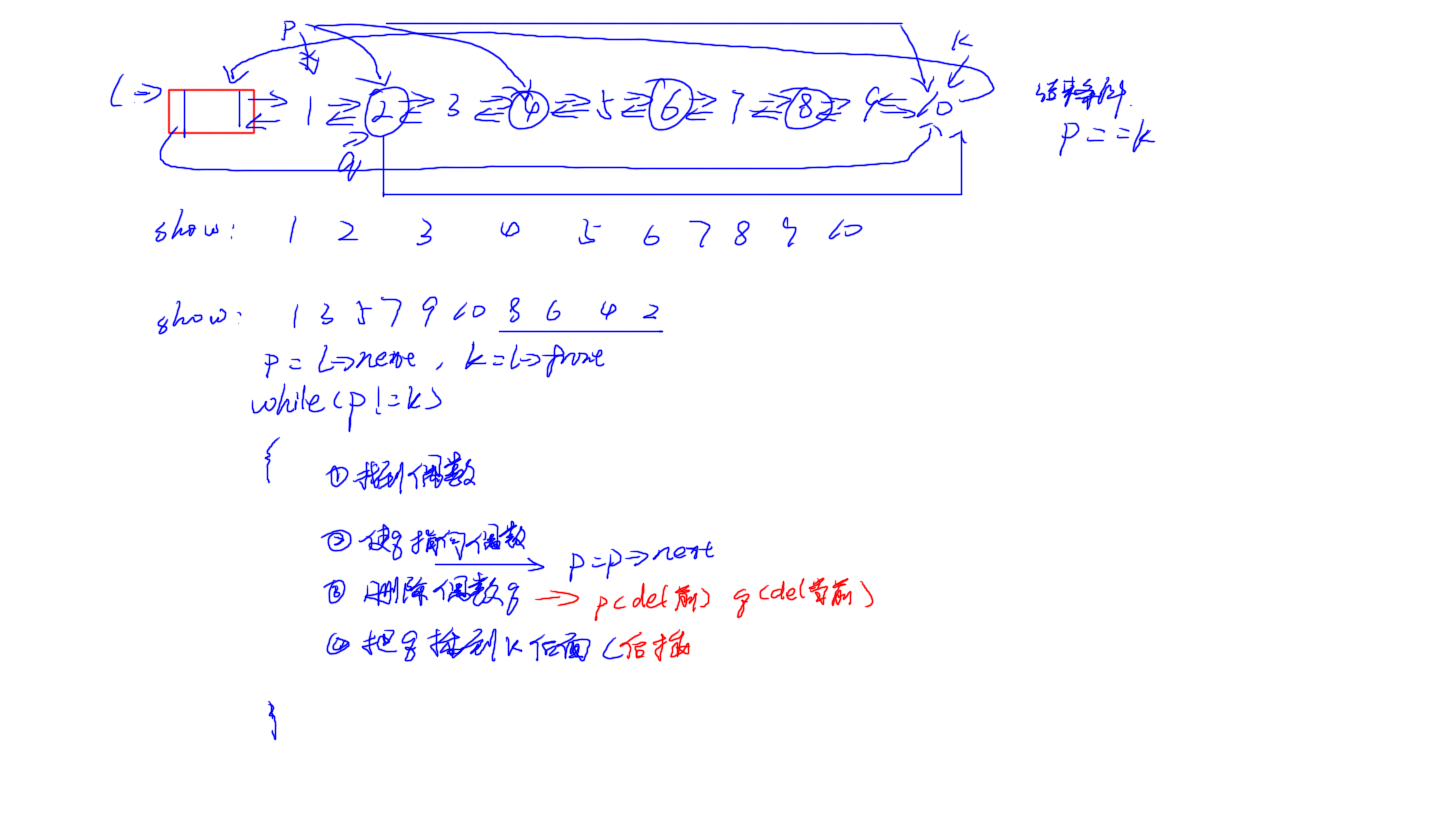 P
K
L->
1 2 3 4 5 6 7 8 9 10
结束条件
P==k
q
show: 1 2 3 4 5 6 7 8 9 10
show: 1 3 5 7 9 10 8 6 4 2
P=L->next, k=L->front
while(p!=k)
{
①找到偶数
②使q指向偶数
p=p->next
③删除偶数q -> p(del前) q(del当前)
④把q插到k后面(后插
}